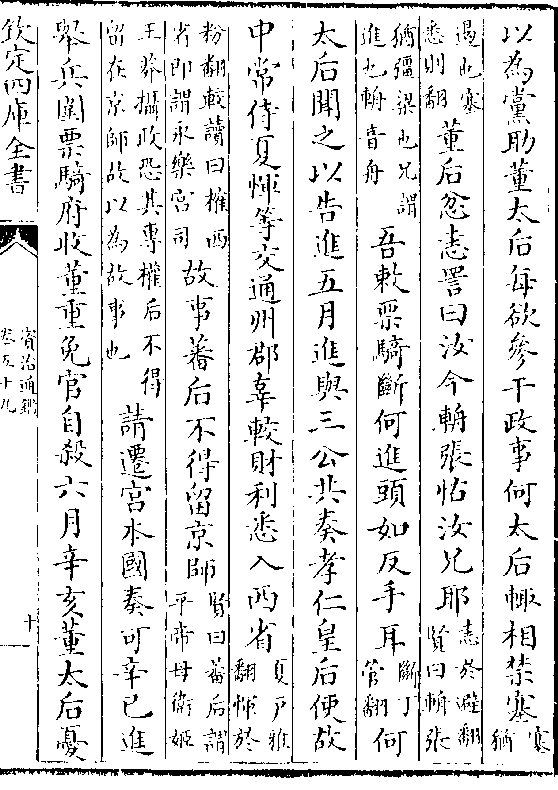 以為黨助董太后每欲參干政事何太后輙相禁塞塞猶
遏也塞悉則翻董后忿恚詈曰汝今輈張怙汝兄耶恚於避翻賢曰輈張
猶彊梁也兄謂進也輈音舟吾敕票騎斷何進頭如反手耳斷丁管翻何
太后聞之以告進五月進與三公共奏孝仁皇后使故
中常侍夏惲等交通州郡辜較財利悉入西省夏戸雅翻惲於
粉翻較讀曰榷西省即謂永樂宫司故事蕃后不得留京師賢曰蕃后謂平帝母衛姬
王莽攝政恐其專權后不得留在京師故以為故事也請遷宫本國奏可辛已進
舉兵圍票騎府收董重免官自殺六月辛亥董太后憂
欽定四庫全書
資治通鑑
卷五十九
十